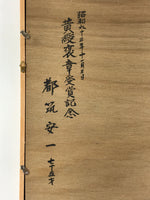 昭和五十五年十一月三日
黄綬褒章受賞記念
都筑安一
七十五才